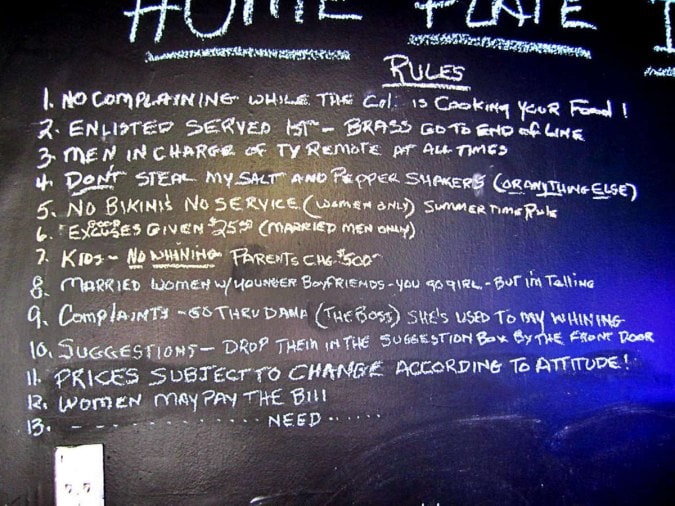 HOME PLATE
RULES
1. NO COMPLAINING WHILE THE Col. IS COOKING YOUR FOOD!
2. ENLISTED SERVED 1ST - BRASS GO TO END OF LINE
3. MEN IN CHARGE OF TV REMOTE AT ALL TIMES
4. DONT STEAL MY SALT AND PEPPER SHAKERS (OR ANYTHING ELSE)
5. NO BIKINIS NO SERVICE (WOMEN ONLY) SUMMERTIME RULE
6. GOOD EXCUSES GIVEN $25.00 (MARRIED MEN ONLY)
7. KIDS - NO WHINING PARENTS CHG. $5.00
8. MARRIED WOMEN W/YOUNGER BOYFRIENDS - YOU GO GIRL - BUT I'M TELLING
9. COMPLAINTS - GO THRU DANA (THE BOSS) SHE'S USED TO MY WHINING
10. SUGGESTIONS - DROP THEM IN THE SUGGESTION BOX BY THE FRONT DOOR
11. PRICES SUBJECT TO CHANGE ACCORDING TO ATTITUDE!
12. WOMEN MAY PAY THE BILL
13. - - - - - - - - - - NEED - - - - - -